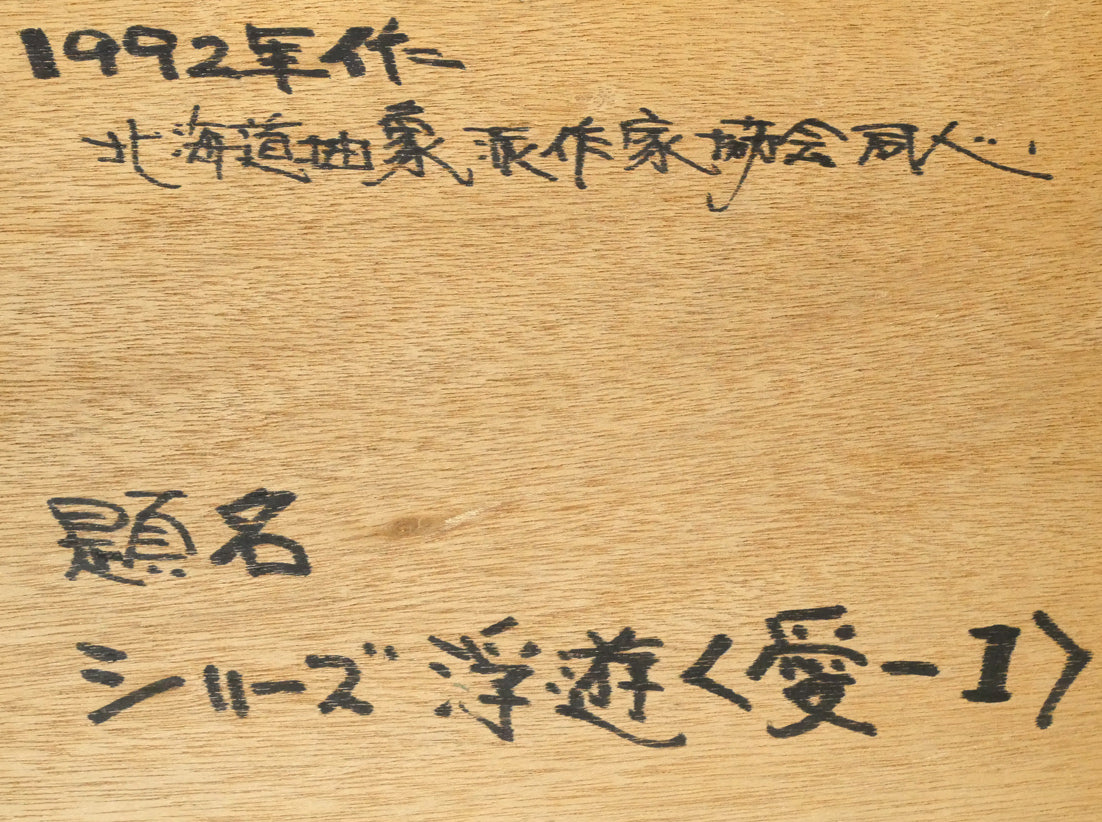 1992年作
北海道抽象派作家協会同人
題名
シリーズ浮遊〈愛-I〉